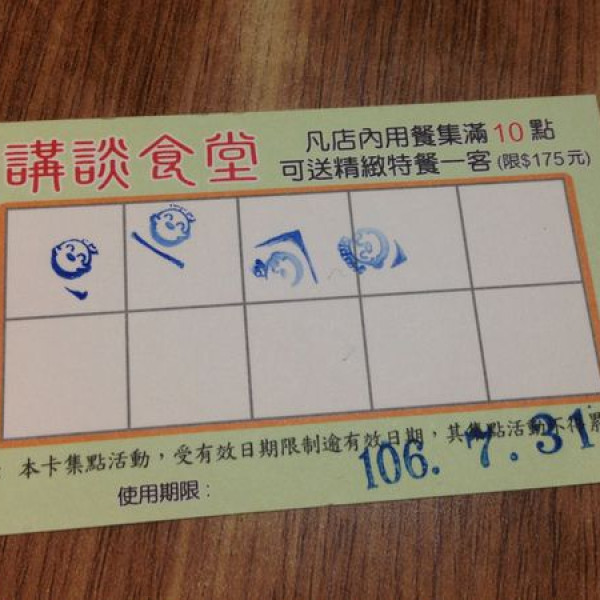 講談食堂
凡店內用餐集滿10點
可送精緻特餐一客(限$175元)
本卡集點活動，受有效日期限制逾有效日期，其集點活動不得累
使用期限：
106.7.31